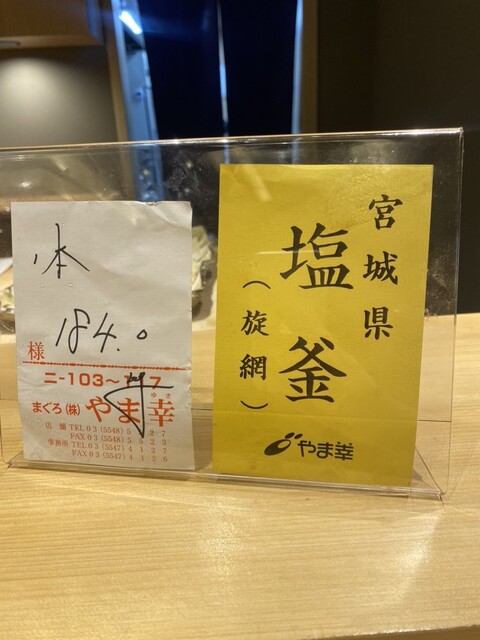 本
184.0
様
ニ-103~
まぐろ(株)やま幸
ゆき
店舗 TEL 03 (5548) 5 2 7
FAX 03 (5548) 5 5 2 3
事務所 TEL 03 (5547) 4 1 2
FAX 03 (5547) 4 1 2 6
宮城県
塩釜
(旋網)
やま幸